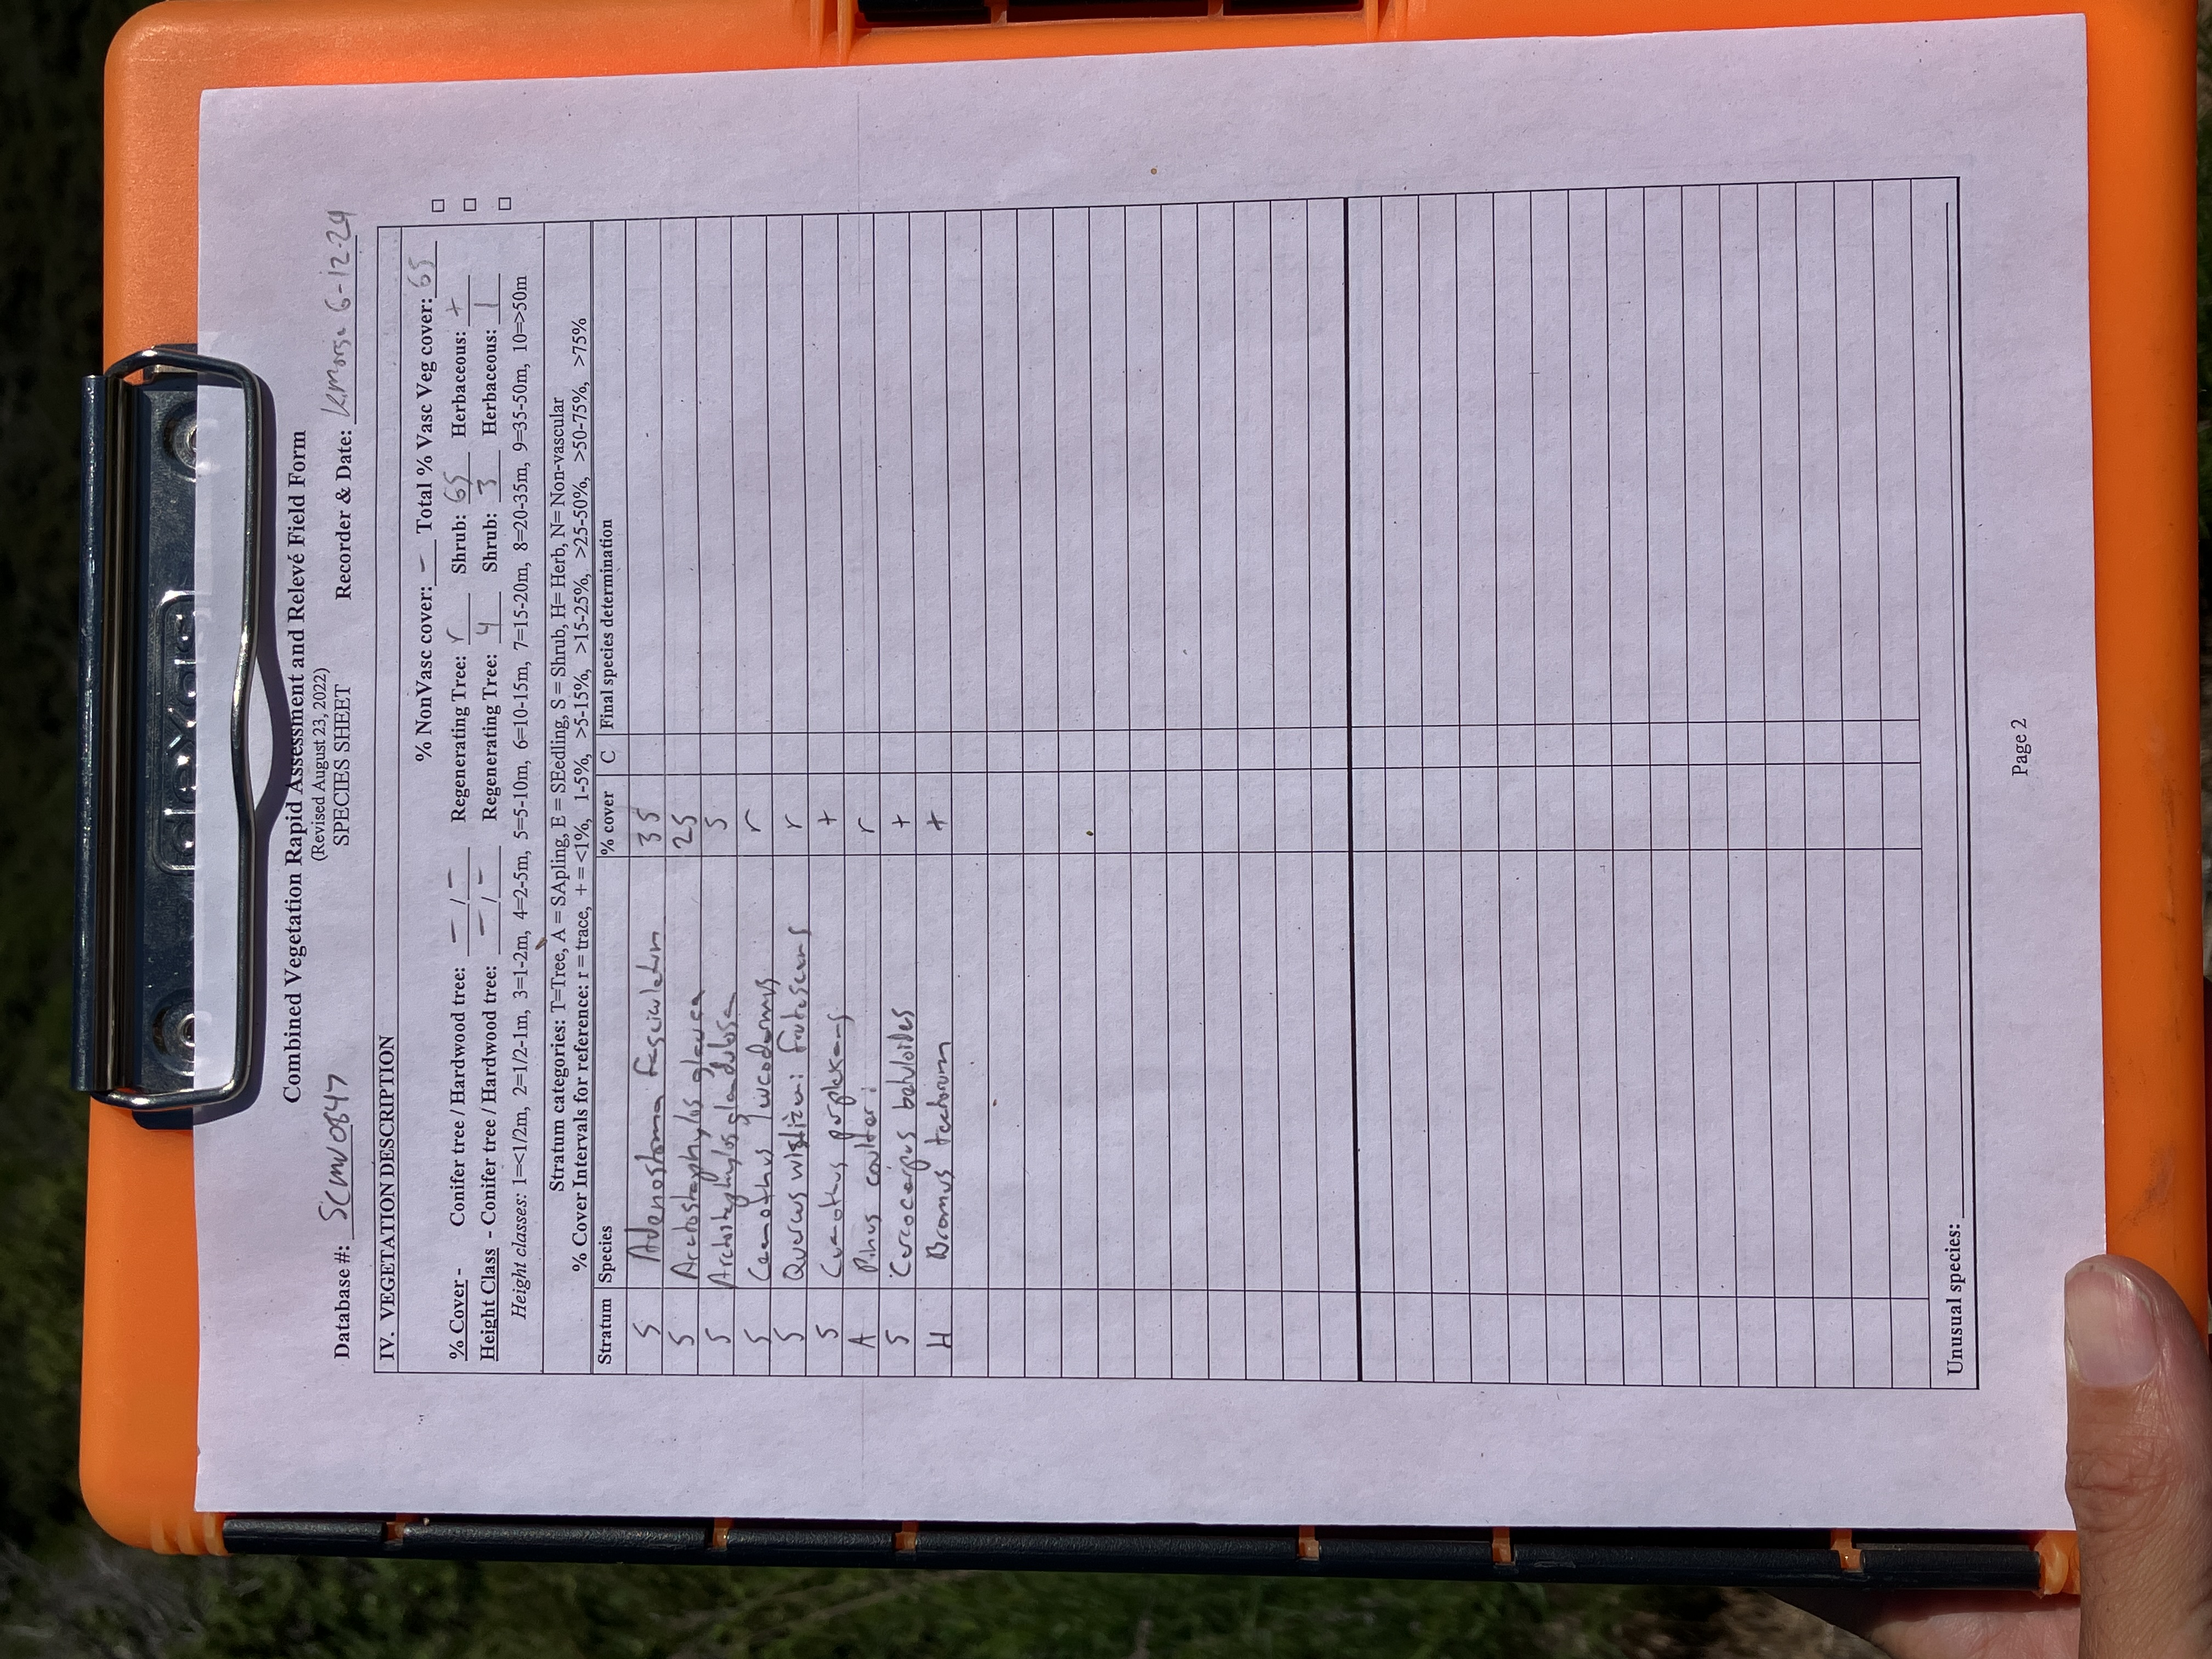 dexas
Combined Vegetation Rapid Assessment and Relevé Field Form
(Revised August 23, 2022)
SPECIES SHEET
Database #: SCMV0847 Recorder & Date: K.Morse 6-12-24
IV. VEGETATION DESCRIPTION
% NonVasc cover: - Total % Vasc Veg cover: 65 □
% Cover - Conifer tree / Hardwood tree: - / - Regenerating Tree: r Shrub: 65 Herbaceous: + □
Height Class - Conifer tree / Hardwood tree: - / - Regenerating Tree: 4 Shrub: 3 Herbaceous: 1 □
Height classes: 1=<1/2m, 2=1/2-1m, 3=1-2m, 4=2-5m, 5=5-10m, 6=10-15m, 7=15-20m, 8=20-35m, 9=35-50m, 10=>50m
Stratum categories: T=Tree, A = SApling, E = SEedling, S = Shrub, H= Herb, N= Non-vascular
% Cover Intervals for reference: r = trace, + = <1%, 1-5%, >5-15%, >15-25%, >25-50%, >50-75%, >75%
Stratum Species % cover C Final species determination
S Adenostoma fasciculatum 35
S Arctostaphylos glauca 25
S Arctostaphylos glandulosa 5
S Ceanothus leucodermis r
S Quercus wislizeni frutescens r
S Ceanothus perplexans +
A Pinus coulteri r
S Cercocarpus betuloides +
H Bromus tectorum +
Unusual species:
Page 2